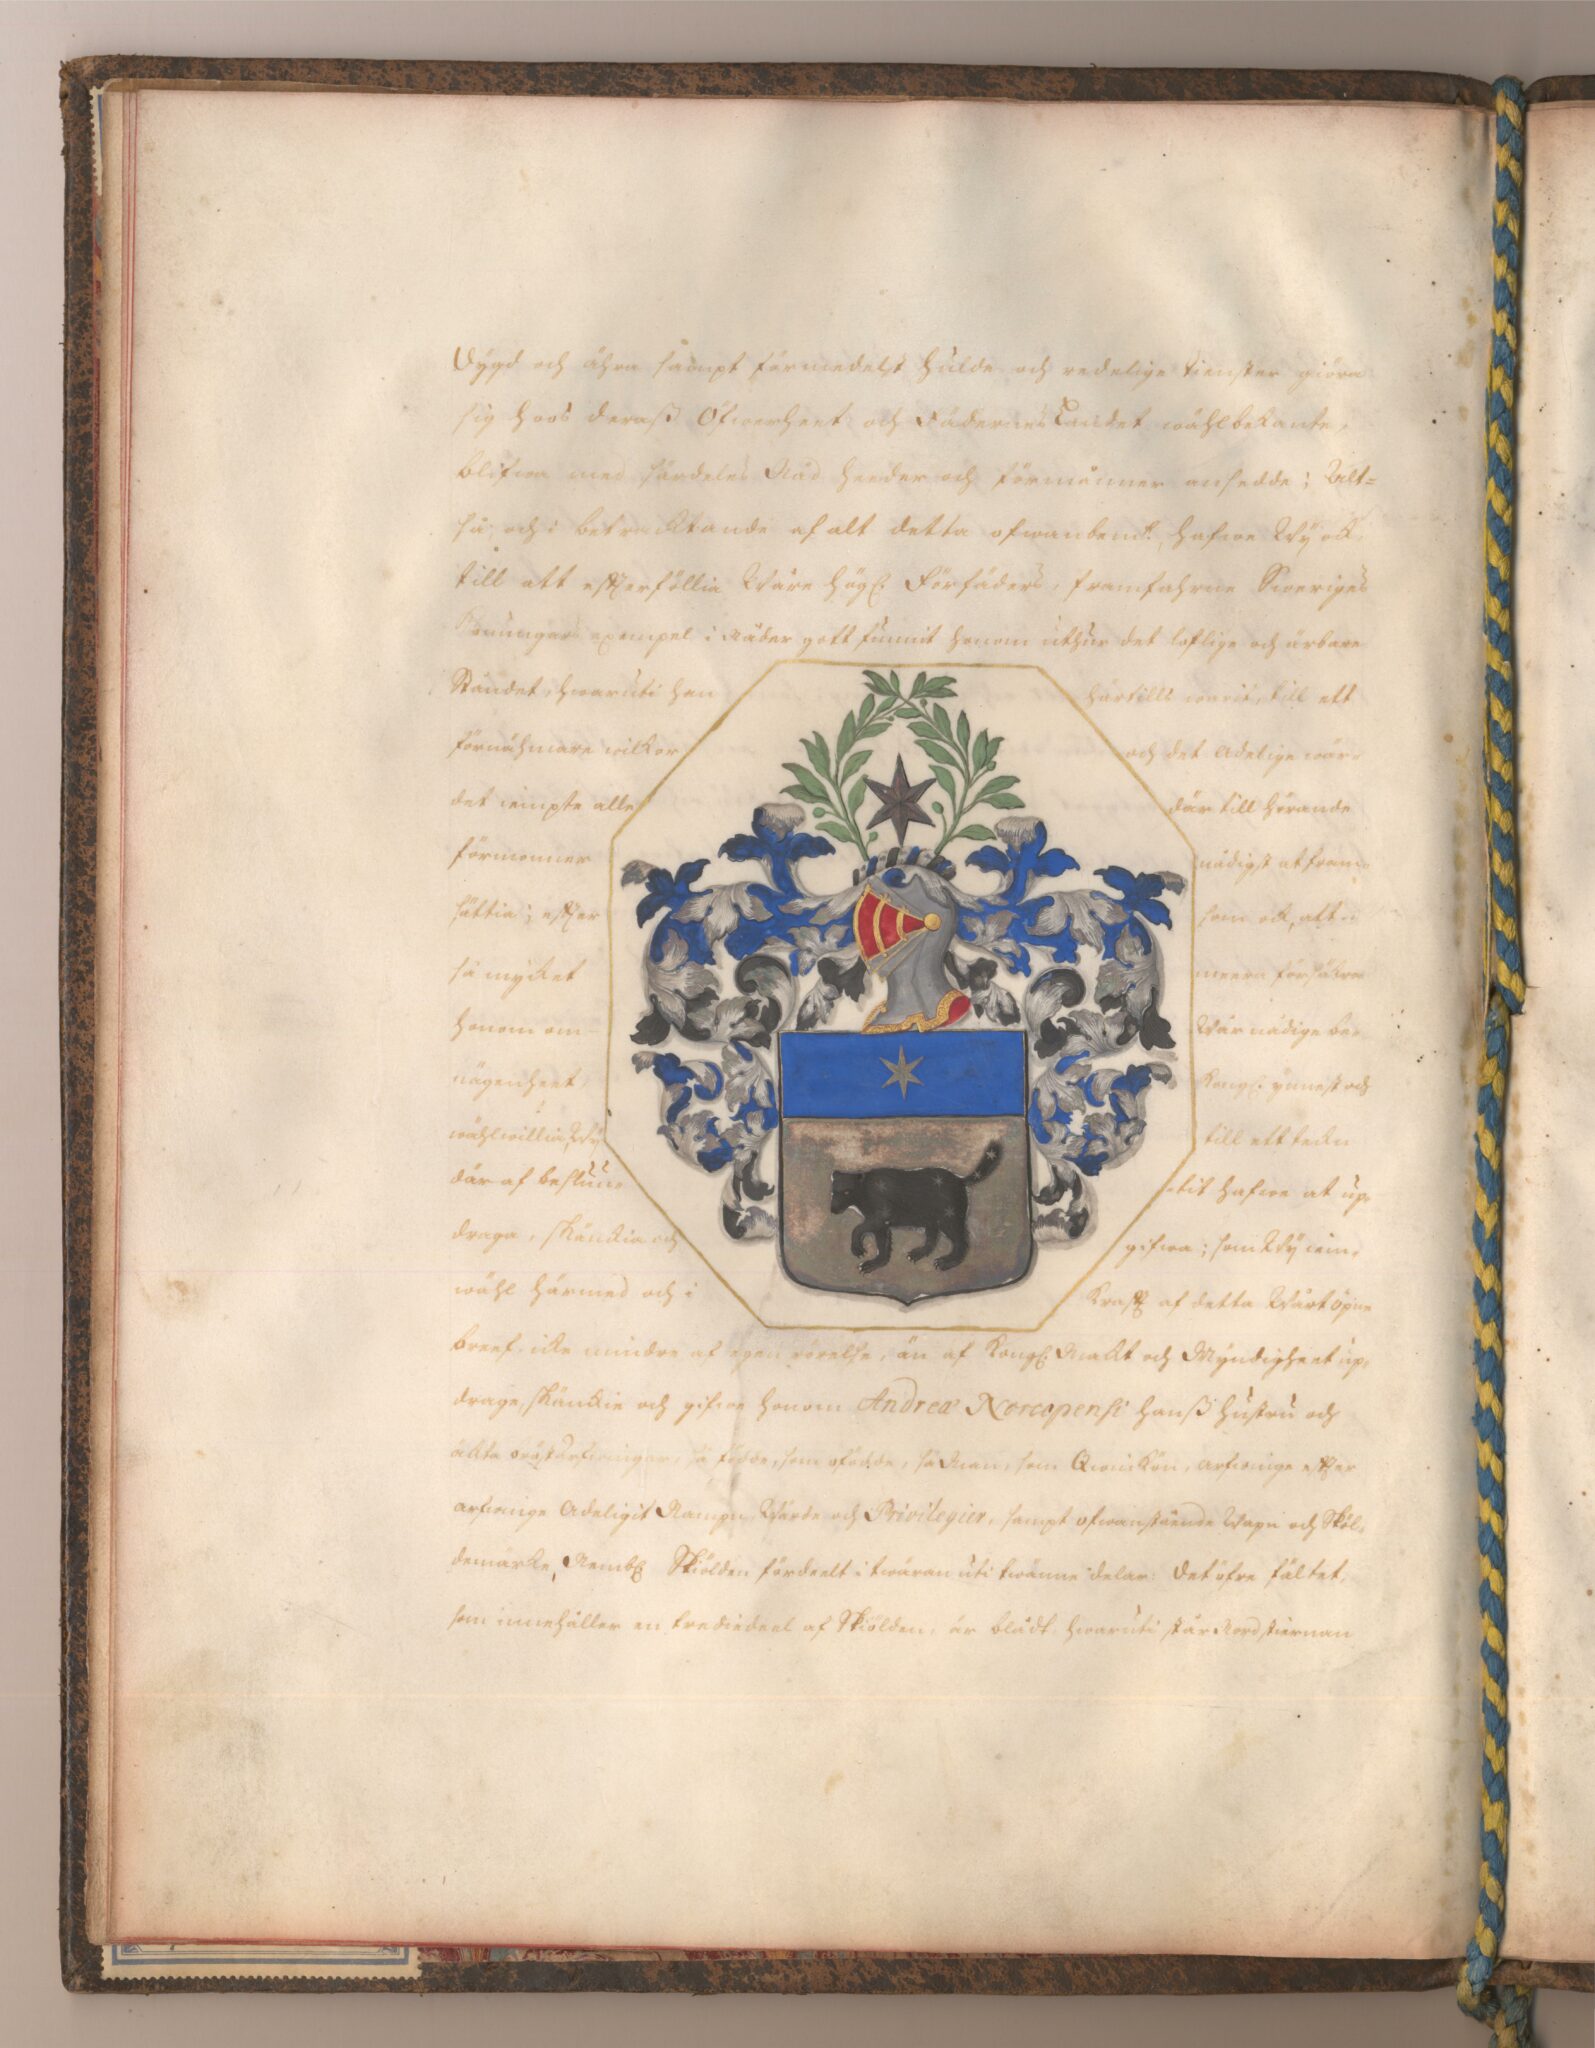 Dygd och ähra sampt förmedelst hulde och redelige tienster giöra
sig hoos deraß Öfwerheet och Fädernes Landet wählbekante,
blifwa med särdeles Nåd heeder och förmåner ansedde; Alt=
så, och i betracktande af alt detta ofwanbem:te, hafwe Wij ock,
till att effterföllia Wåre högl. Förfäders, framfahrne Sweriges
Konungars exempel i Nåder gott funnit honom uthur det loflige och ärbare
Ståndet, hwaruti han härtills warit, till ett
förnähmare wilkor och det Adelige wär-
det iempte alle där till hörande
förmoner nådigst at fram-
sättia; effter som ock, att i
så mycket meera försäkra
honom om Wår nådige be-
nägenheet, Kongl. ynnest och
wählwillia, Wij till ett tecken
där af beslu- tit hafwe at up-
draga, skänckia och gifwa; som Wij iem-
wähl härmed och i Krafft af detta Wårt öpne
breef, icke mindre af egen rörelse, än af Kongl. Makt och Myndigheet up-
drage, skänckie och gifwe honom Andreæ Norcopensi hanß hustru och
äkta bröstarfwingar, så födde, som ofödde, så Man, som Qwinkön, arfwinge effter
arfwinge Adeligit Nampn, Wärde och Privilegier, sampt ofwanstående Wapn och Skiöl-
demärke, Nembl. Skiölden fördeelt i twären uti twänne delar: Det öfre fältet,
som innehåller en trediedeel af Skiölden, är blådt, hwaruti står Nordstiernan